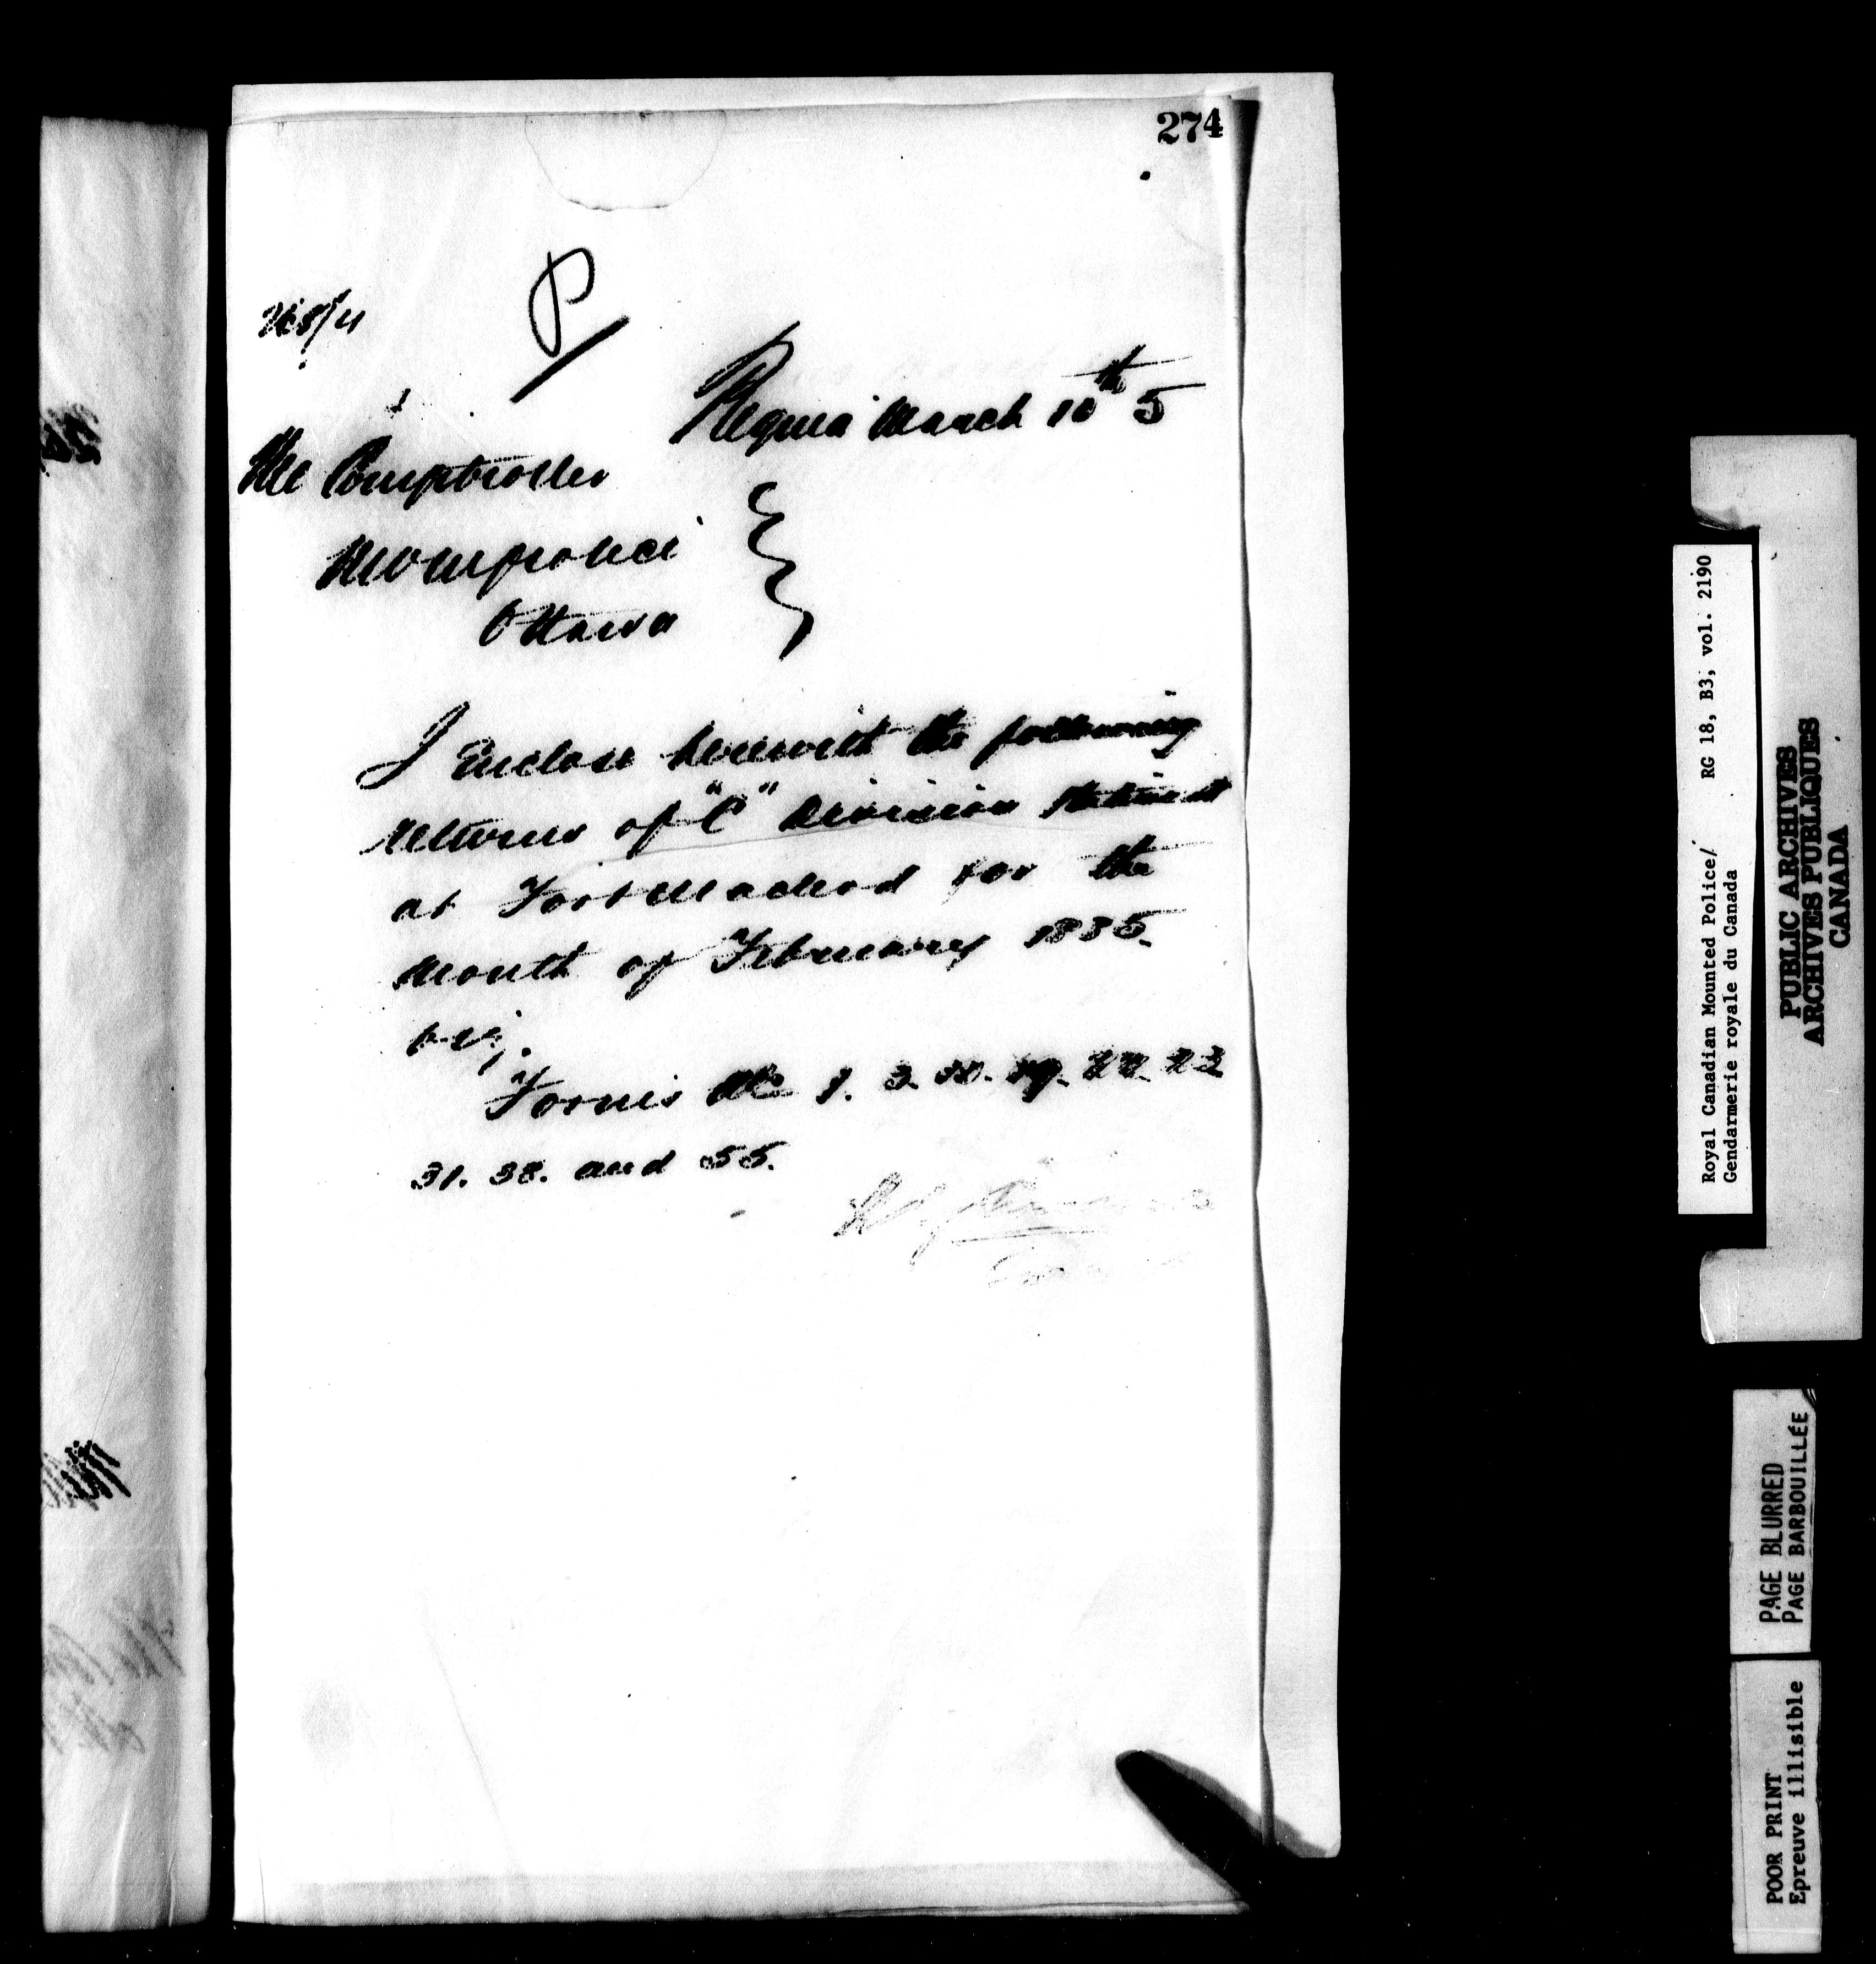 274
P
Regina March 10th 5
The Comptroller
N W M Police
Ottawa
I Enclose herewith the following
returns of "C" Division stationed
at Fort Macleod for the
Month of February 1885.
viz;
Forms No 1. 3. 19. 22. 23
31. 38. and 55.
Royal Canadian Mounted Police/ RG 18, B3, vol. 2190
Gendarmerie royale du Canada
PUBLIC ARCHIVES
ARCHIVES PUBLIQUES
CANADA
PAGE BLURRED
PAGE BARBOUILLÉE
POOR PRINT
Epreuve illisible